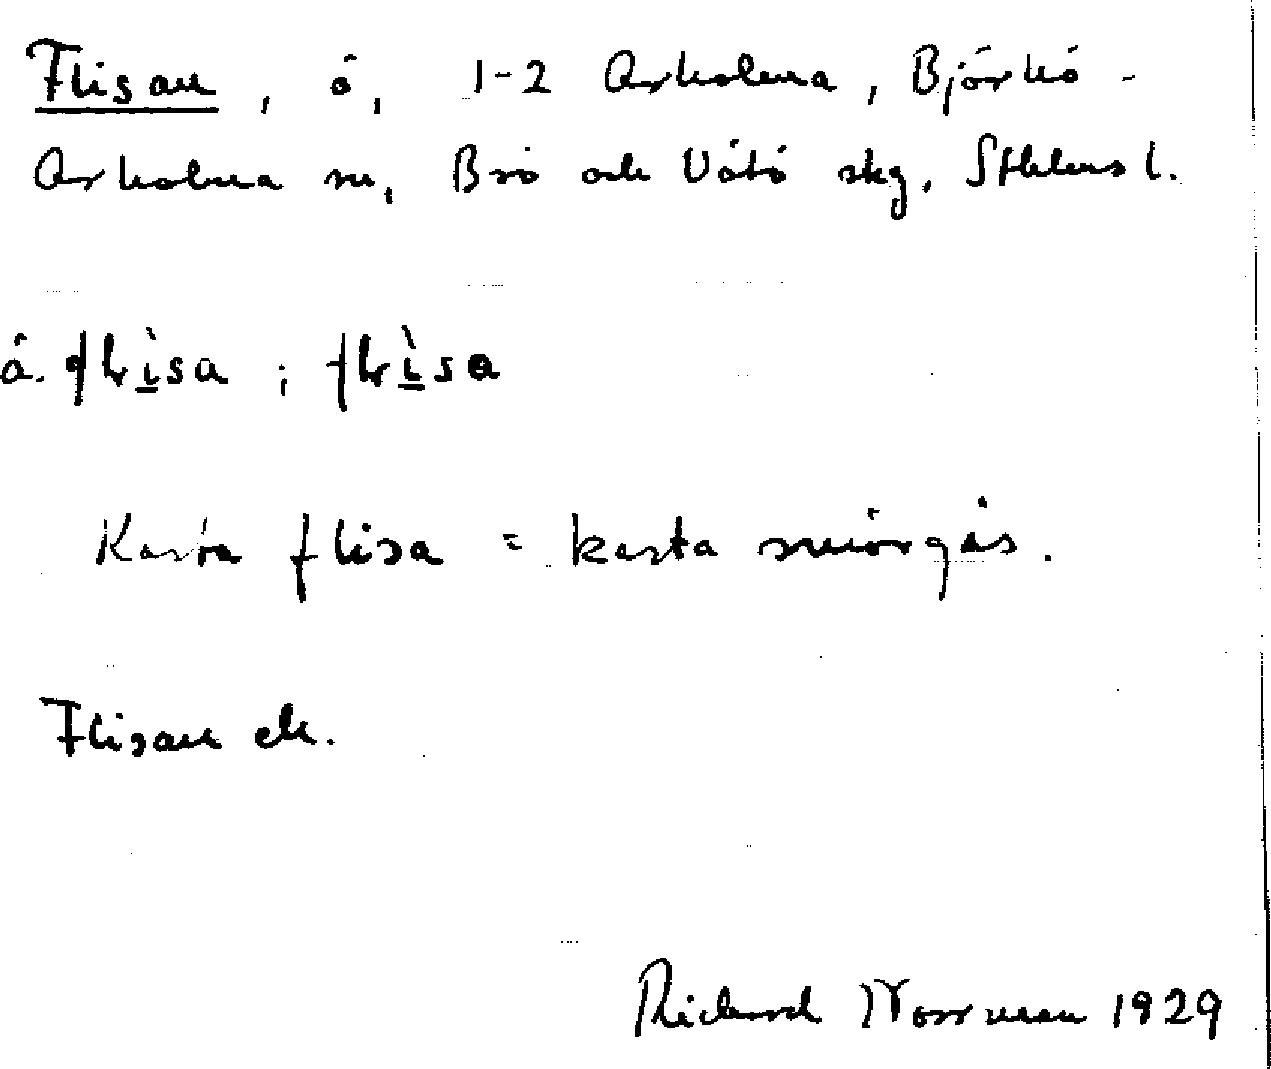 Flisan, ö, 1-2 Arholma, Björkö-
Arholma sn, Bro och Vätö skg, Sthlms l.
å. flìsa ; flìsa
Kasta flisa = kasta smörgås.
Flisan ek.
Richard Norrman 1929